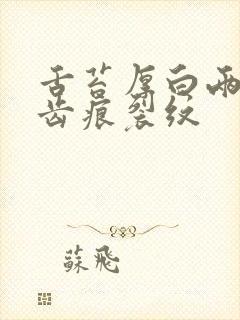 舌苔厚白两
齿痕裂纹
蘇飛